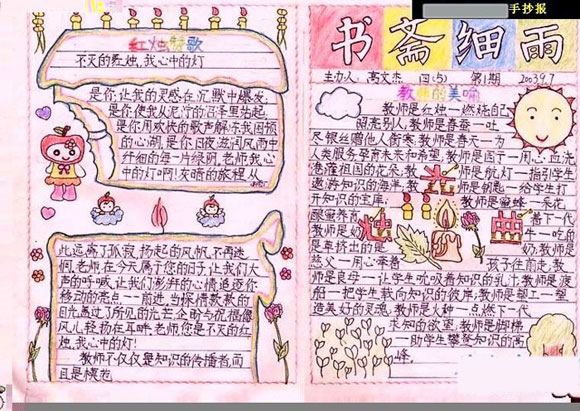 手抄报
红烛颂歌
不灭的红烛,我心中的灯
是你,让我的灵感在沉默中爆发;
是你,使我从泥泞的沼泽里站起,
是你,用欢快的歌声解冻我困顿
的心湖,是你,日夜滋润风西中
纤细的每一片绿荫,老师,我心
中的灯啊!友暗的旅程从
此远离了孤寂,扬起的风帆不再迷
惘,老师,在今天属于您的日子,让我们大
声的呼喊,让我们澎湃的心情追逐你
移动的亮点——前进,当深情款款的
目光高过了所见的光芒,企盼与祝福像
风儿轻扬在耳畔,老师,您是不灭的红
烛,我心中的灯!
教师不仅仅是知识的传播者,而
且是模范
书斋细雨
主办人:高文杰 四(5) 第1期 2003.9.7
教师的美喻
教师是红烛—燃烧自己
照亮别人,教师是春蚕—吐
尽银丝赠他人御寒,教师是春天—为
人类服务,孕育未来和希望,教师是园丁—用心血浇
灌祖国的花朵,教师是航灯—指引学生
遨游知识的海洋,教师是钥匙—给学生打
开知识的宝库,教师是蜜蜂—采花
酿蜜养育下一代
教师是奶牛—吃的
是草,挤出的是奶,教师是
慈父—用心牵着孩子往前走,教
师是良母—让学生吮吸着知识的乳汁,教师是渡
船—把学生载向知识的彼岸,教师是塑工—塑
造美好的灵魂,教师是火种—点燃下一代
求知的欲望,教师是脚梯
—助学生攀登知识的高
峰。